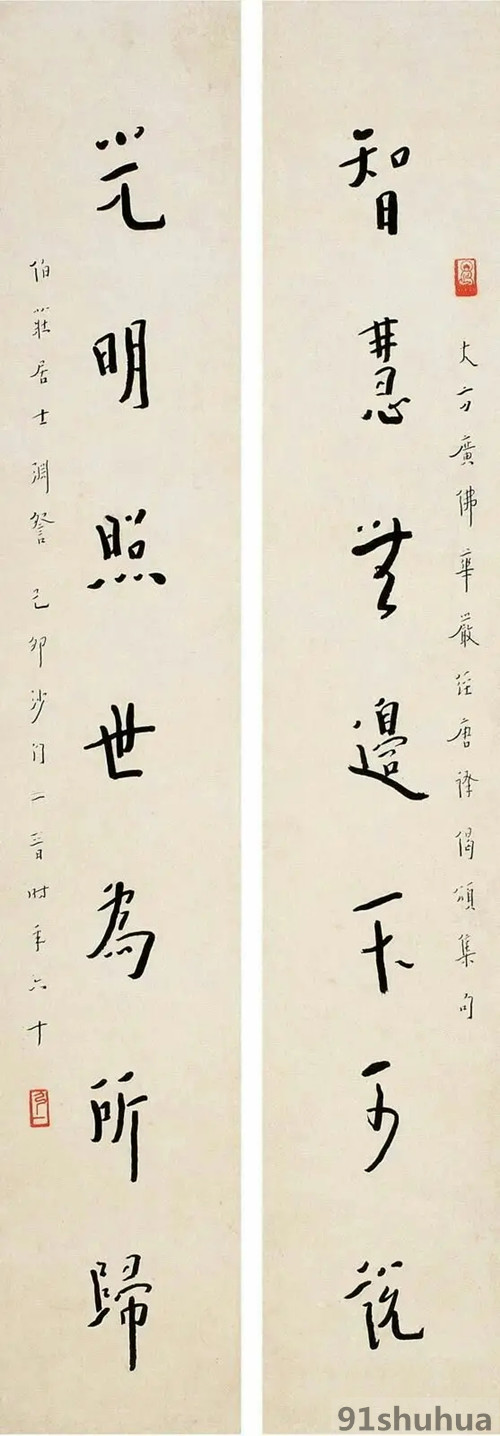 大方廣佛華嚴經唐譯偈頌集句
智慧無邊不可說
光明照世為所歸
伯莊居士淵詧 己卯沙門一音時年六十
91shuhua